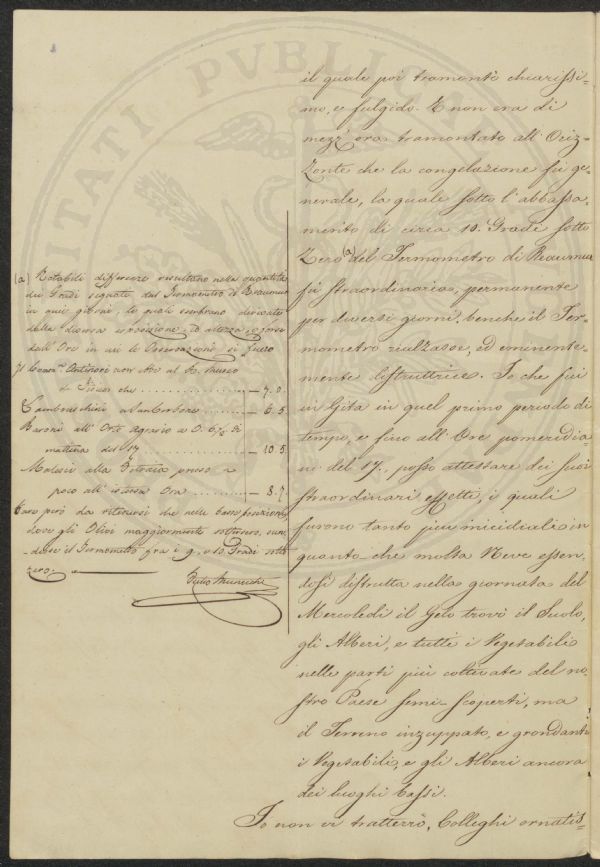 il quale poi tramontò chiarissi-
mo, e fulgido. E non era di
mezz' ora tramontato all' Oriz-
zonte che la congelazione fu ge-
nerale, la quale sotto l' abbassa-
mento di circa 10. Gradi sotto
Zero (a) del Termometro di Reaumur
fu straordinaria, permanente
per diversi giorni, benchè il Ter-
mometro rialzasse, ed eminente-
mente distruttrice. Io che fui
in Gita in quel primo periodo di
tempo, e fino all' Ore pomeridia-
ne del 17., posso attestare dei suoi
straordinari effetti, i quali
furono tanto più micidiali in
quanto che molta Neve essen-
dosi distrutta nella giornata del
Mercoledì il Gelo trovò il Suolo,
gli Alberi, e tutti i Vegetabili
nelle parti più coltivate del no-
stro Paese semi-scoperti, ma
il Terreno inzuppato, e grondanti
i Vegetabili, e gli Alberi ancora
dei luoghi bassi.
Io non vi tratterrò, Colleghi ornatis-
(a) Notabili differenze resultano nella quantità
dei Gradi segnati dal Termometro di Reaumur
in quei giorni, le quali sembrano derivate
dalla diversa esposizione, ed altezza, o forse
dall' Ore in cui le Osservazioni si fecero
Il Antinori al Museo
di Fisica che — 7. 0.
Lambruschini a — 6. 5.
all' Orto Agrario a O. 6 ½ di
mattina del 17 — 10. 5.
alla Petraia presso a
poco all' istessa Ora — 8. 7.
però da ritenersi che nelle basse posizioni
dove gli Olivi maggiormente soffersero, scen-
desse il Termometro fra i 9. e 10. Gradi sotto
zero.